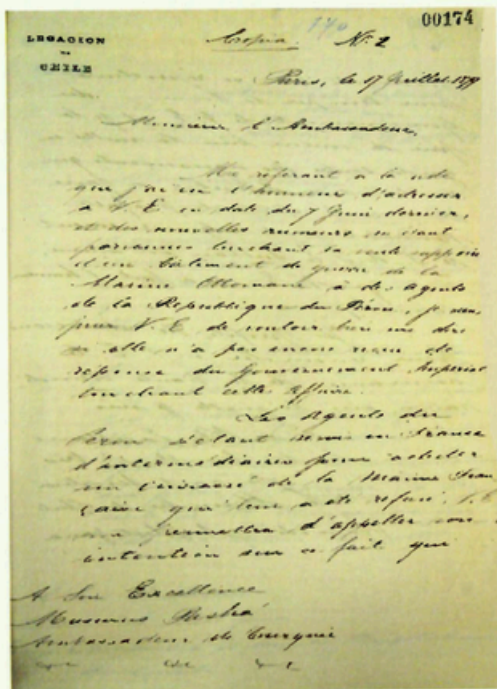 00174
140
LEGACION
DE
CHILE
Copia. Nº 2
Paris, le 17 Juillet 1879
Monsieur l'Ambassadeur,
Me referant a la note
que j'ai eu l'honneur d'adresser
a V. E. en date du 7 Juin dernier,
et des nouvelles rumeurs
parvenues touchant la vente
d'un bâtiment de guerre de la
Marine Ottomane à des Agents
de la Republique du Pérou, je
prier V. E. de vouloir bien me dire
si elle n'a pas encore reçu de
reponse du Gouvernement Imperial
touchant cette affaire.
Les Agents du
Perou s'etant servis en France
d'intermédiaires pour acheter
un cuirassé de la Marine Fran
çaise qui leur a été refusé, V. E.
permettra d'appeller son
intention sur ce fait que
A Son Excellence
Musurus Pasha
Ambassadeur de Turquie